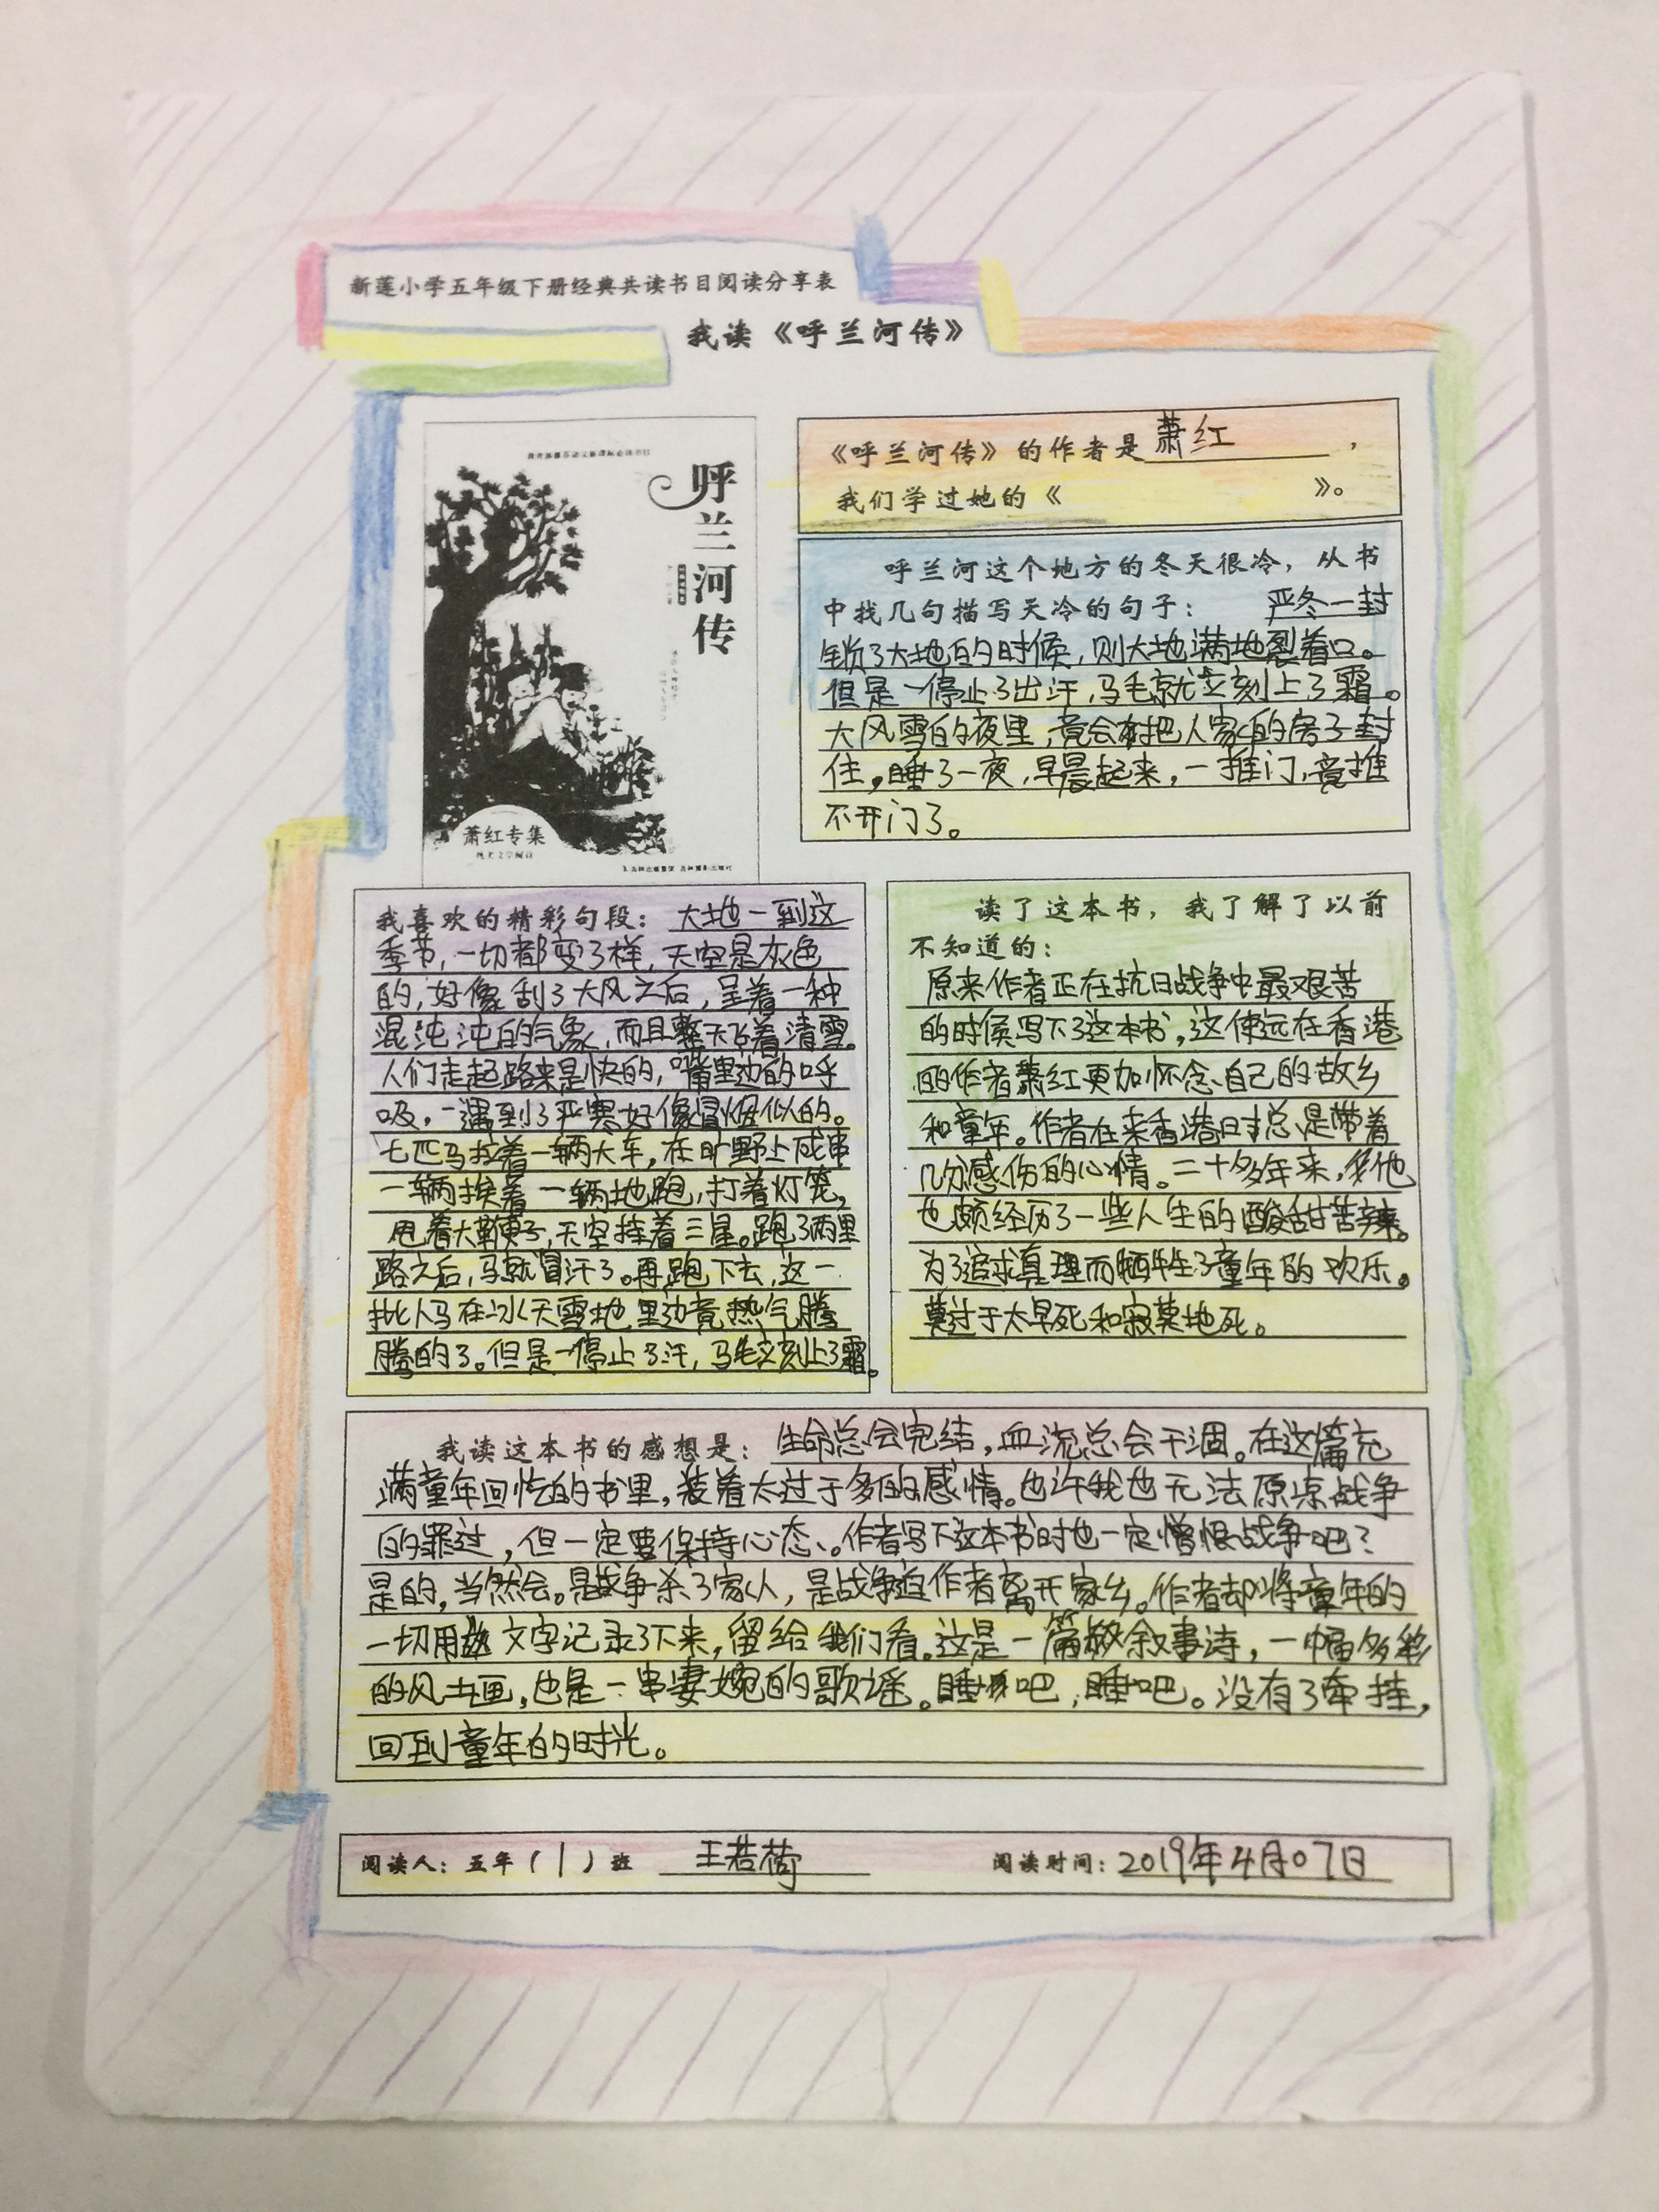 新莲小学五年级下册经典共读书目阅读分享表
我读《呼兰河传》
呼兰河传
萧红专集
《呼兰河传》的作者是萧红，
我们学过她的《 》。
呼兰河这个地方的冬天很冷，从书
中找几句描写天冷的句子： 严冬一封
锁了大地的时候，则大地满地裂着口。
但是一停止了出汗，马毛就立刻上了霜。
大风雪的夜里，竟会把人家的房子封
住，睡了一夜，早晨起来，一推门，竟推
不开门了。
我喜欢的精彩句段： 大地一到这
季节，一切都变了样，天空是灰色
的，好像刮了大风之后，呈着一种
混沌沌的气象，而且整天飞着清雪。
人们走起路来是快的，嘴里边的呼
吸，一遇到了严寒好像冒烟似的。
七匹马拉着一辆大车，在旷野上成串
一辆挨着一辆地跑，打着灯笼，
甩着大鞭子，天空挂着三星。跑了两里
路之后，马就冒汗了。再跑下去，这一
批人马在冰天雪地里边竟热气腾
腾的了。但是一停止了汗，马毛立刻上了霜。
读了这本书，我了解了以前
不知道的：
原来作者正在抗日战争中最艰苦
的时候写下了这本书，这使远在香港
的作者萧红更加怀念自己的故乡
和童年。作者在来香港时总是带着
几分感伤的心情。二十多年来，她
也颇经历了一些人生的酸甜苦辣。
为了追求真理而牺牲了童年的欢乐。
莫过于太早死和寂寞地死。
我读这本书的感想是： 生命总会完结，血流总会干涸。在这篇充
满童年回忆的书里，装着太过于多的感情。也许我也无法原凉战争
的罪过，但一定要保持心态。作者写下这本书时也一定憎恨战争吧？
是的，当然会。是战争杀了家人，是战争迫作者离开家乡。作者却将童年的
一切用文字记录了下来，留给我们看。这是一篇叙事诗，一幅多彩
的风土画，也是一串妻婉的歌谣。睡吧，睡吧。没有了牵挂，
回到童年的时光。
阅读人：五年（1）班 王若荷 阅读时间：2019年4月07日